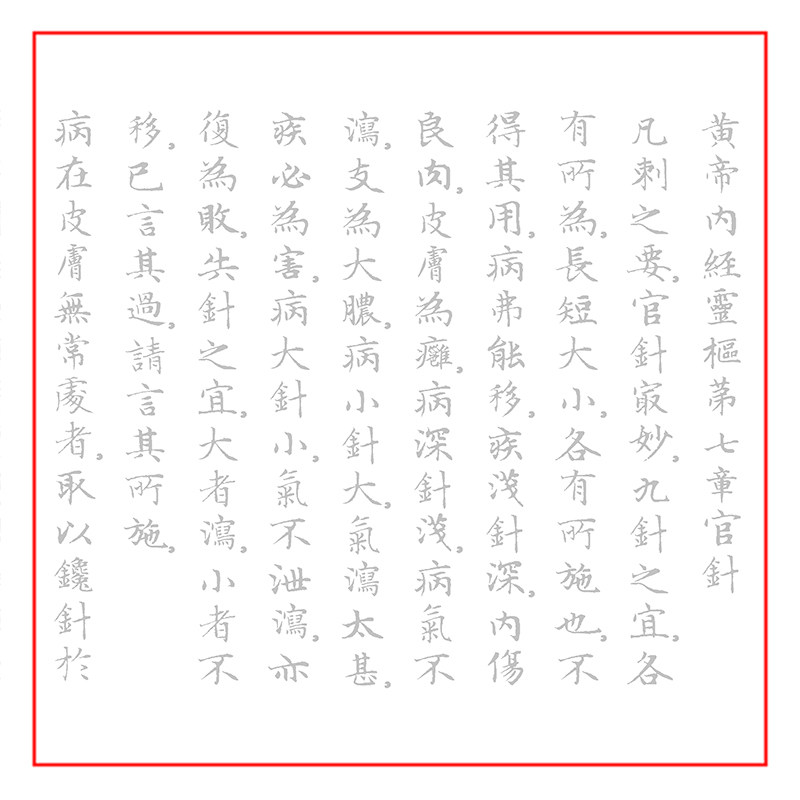 黄帝内經靈樞第七章官針
凡刺之要,官針最妙,九針之宜,各
有所為,長短大小,各有所施也,不
得其用,病弗能移,疾淺針深,内傷
良肉,皮膚為癰,病深針淺,病氣不
瀉,支為大膿,病小針大,氣瀉太甚,
疾必為害,病大針小,氣不泄瀉,亦
復為敗,失針之宜,大者瀉,小者不
移,已言其過,請言其所施,
病在皮膚無常處者,取以鑱針於